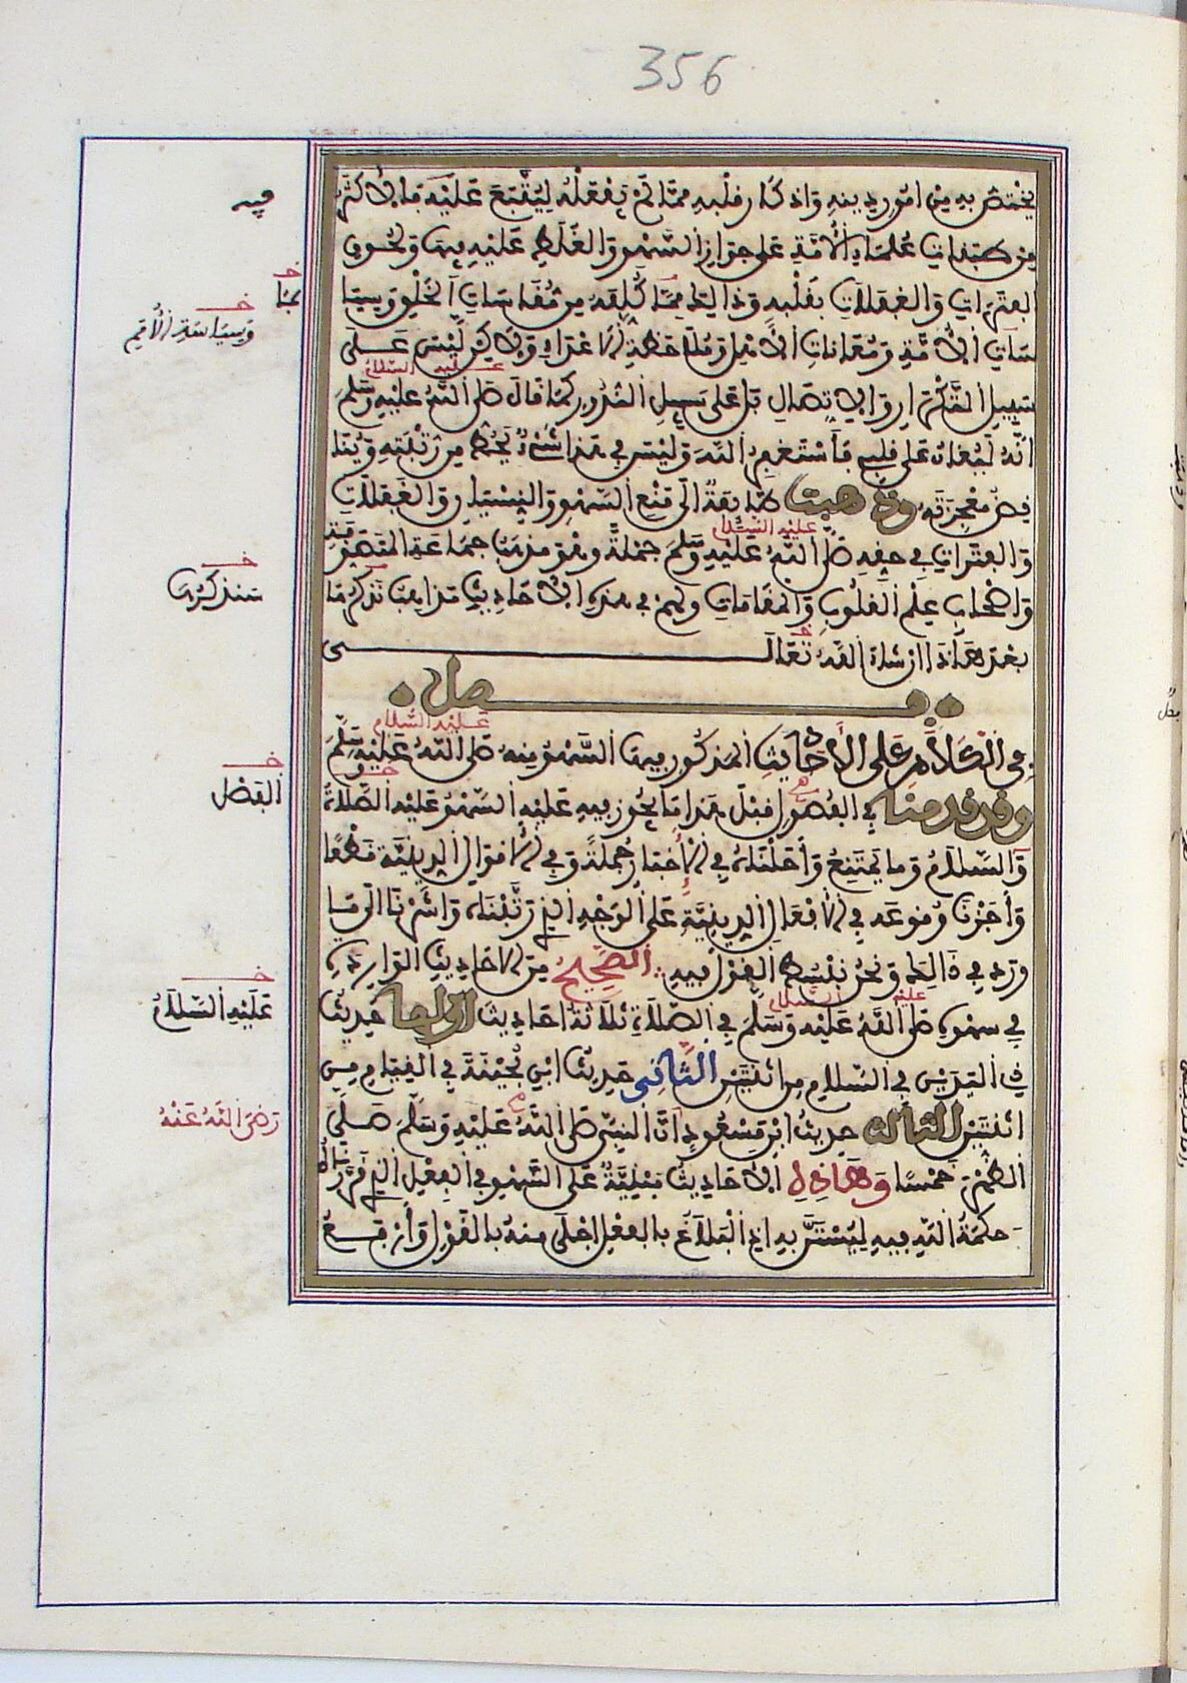 356
يختص به من امور دينه واذكار قلبه مما لم يفعله ليتبع عليه فالاكثر
من طبقات علماء الأمة على جواز السهو والغلط عليه فيها ولحوق
الفترات والغفلات بقلبه وذالك مما كلفه من مقاسات الخلق وسيا
سات الأمة ومعانات الأهل وملاحظة الأعداء ولاكن ليس على
عليه السلام
سبيل التكرار ولا الاتصال بل على سبيل الندور كما قال صلى الله عليه وسلم
انه ليغان على قلبي فأستغفر الله وليس في هذا شيء يحط من رتبته ويُنا
قض معجزته وذهبت طايفة الى منع السهو والنسيان والغفلات
عليه السلام
والفترات في حقه صلى الله عليه وسلم جملة وهو مذهب جماعة المتصوفة
واصحاب علم القلوب والمقامات ولهم في هذه الأحاديث مذاهب نذكرها
بعد هاذا ان شاء الله تعالى
فصل
عليه السلام
في الكلام على الأحاديث المذكور فيها السهو منه صلى الله عليه وسلم
وقد قدمنا في الفصول قبل هذا ما يجوز فيه عليه السهو عليه الصلاة
والسلام وما يمتنع وأحلناه في الأخبار جملة وفي الأقوال الدينية قطعا
وأجزنا وقوعه في الأفعال الدينية على الوجه الذي رتبناه وأشرنا الى ما
ورد في ذالك ونحن نبسط القول فيه الصحيح من الأحاديث الواردة
عليه السلام
في سهوه صلى الله عليه وسلم في الصلاة ثلاثة أحاديث اولها حديث
ذي اليدين في السلام من اثنتين الثاني حديث ابن بحينة في القيام من
اثنتين الثالث حديث ابن مسعود أن النبي صلى الله عليه وسلم صلى
الظهر خمسا وهاذه الأحاديث مبنية على السهو في الفعل الذي قررناه
حكمة الله فيه ليستن به اذ البلاغ بالفعل اجلى منه بالقول وأرفع
فيه
خ
بما
خ
وسياسة الأمم
خ
سنذكرها
خ
الفصل
خ
عليه السلام
رضي الله عنه